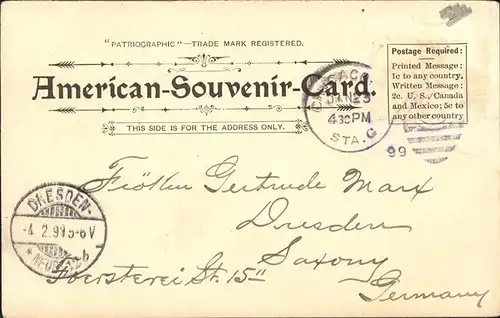 "PATRIOGRAPHIC"—TRADE MARK REGISTERED.
American-Souvenir-Card.
THIS SIDE IS FOR THE ADDRESS ONLY.
Postage Required:
Printed Message:
1c to any country.
Written Message:
2c. U. S., Canada
and Mexico; 5c to
any other country
JAN 23
4 30 PM
STA. C
99
Gertrude Marx
Dresden
Saxony
Foersterei St. 15II
Germany
DRESDEN-
-4. 2. 99 5-6 V